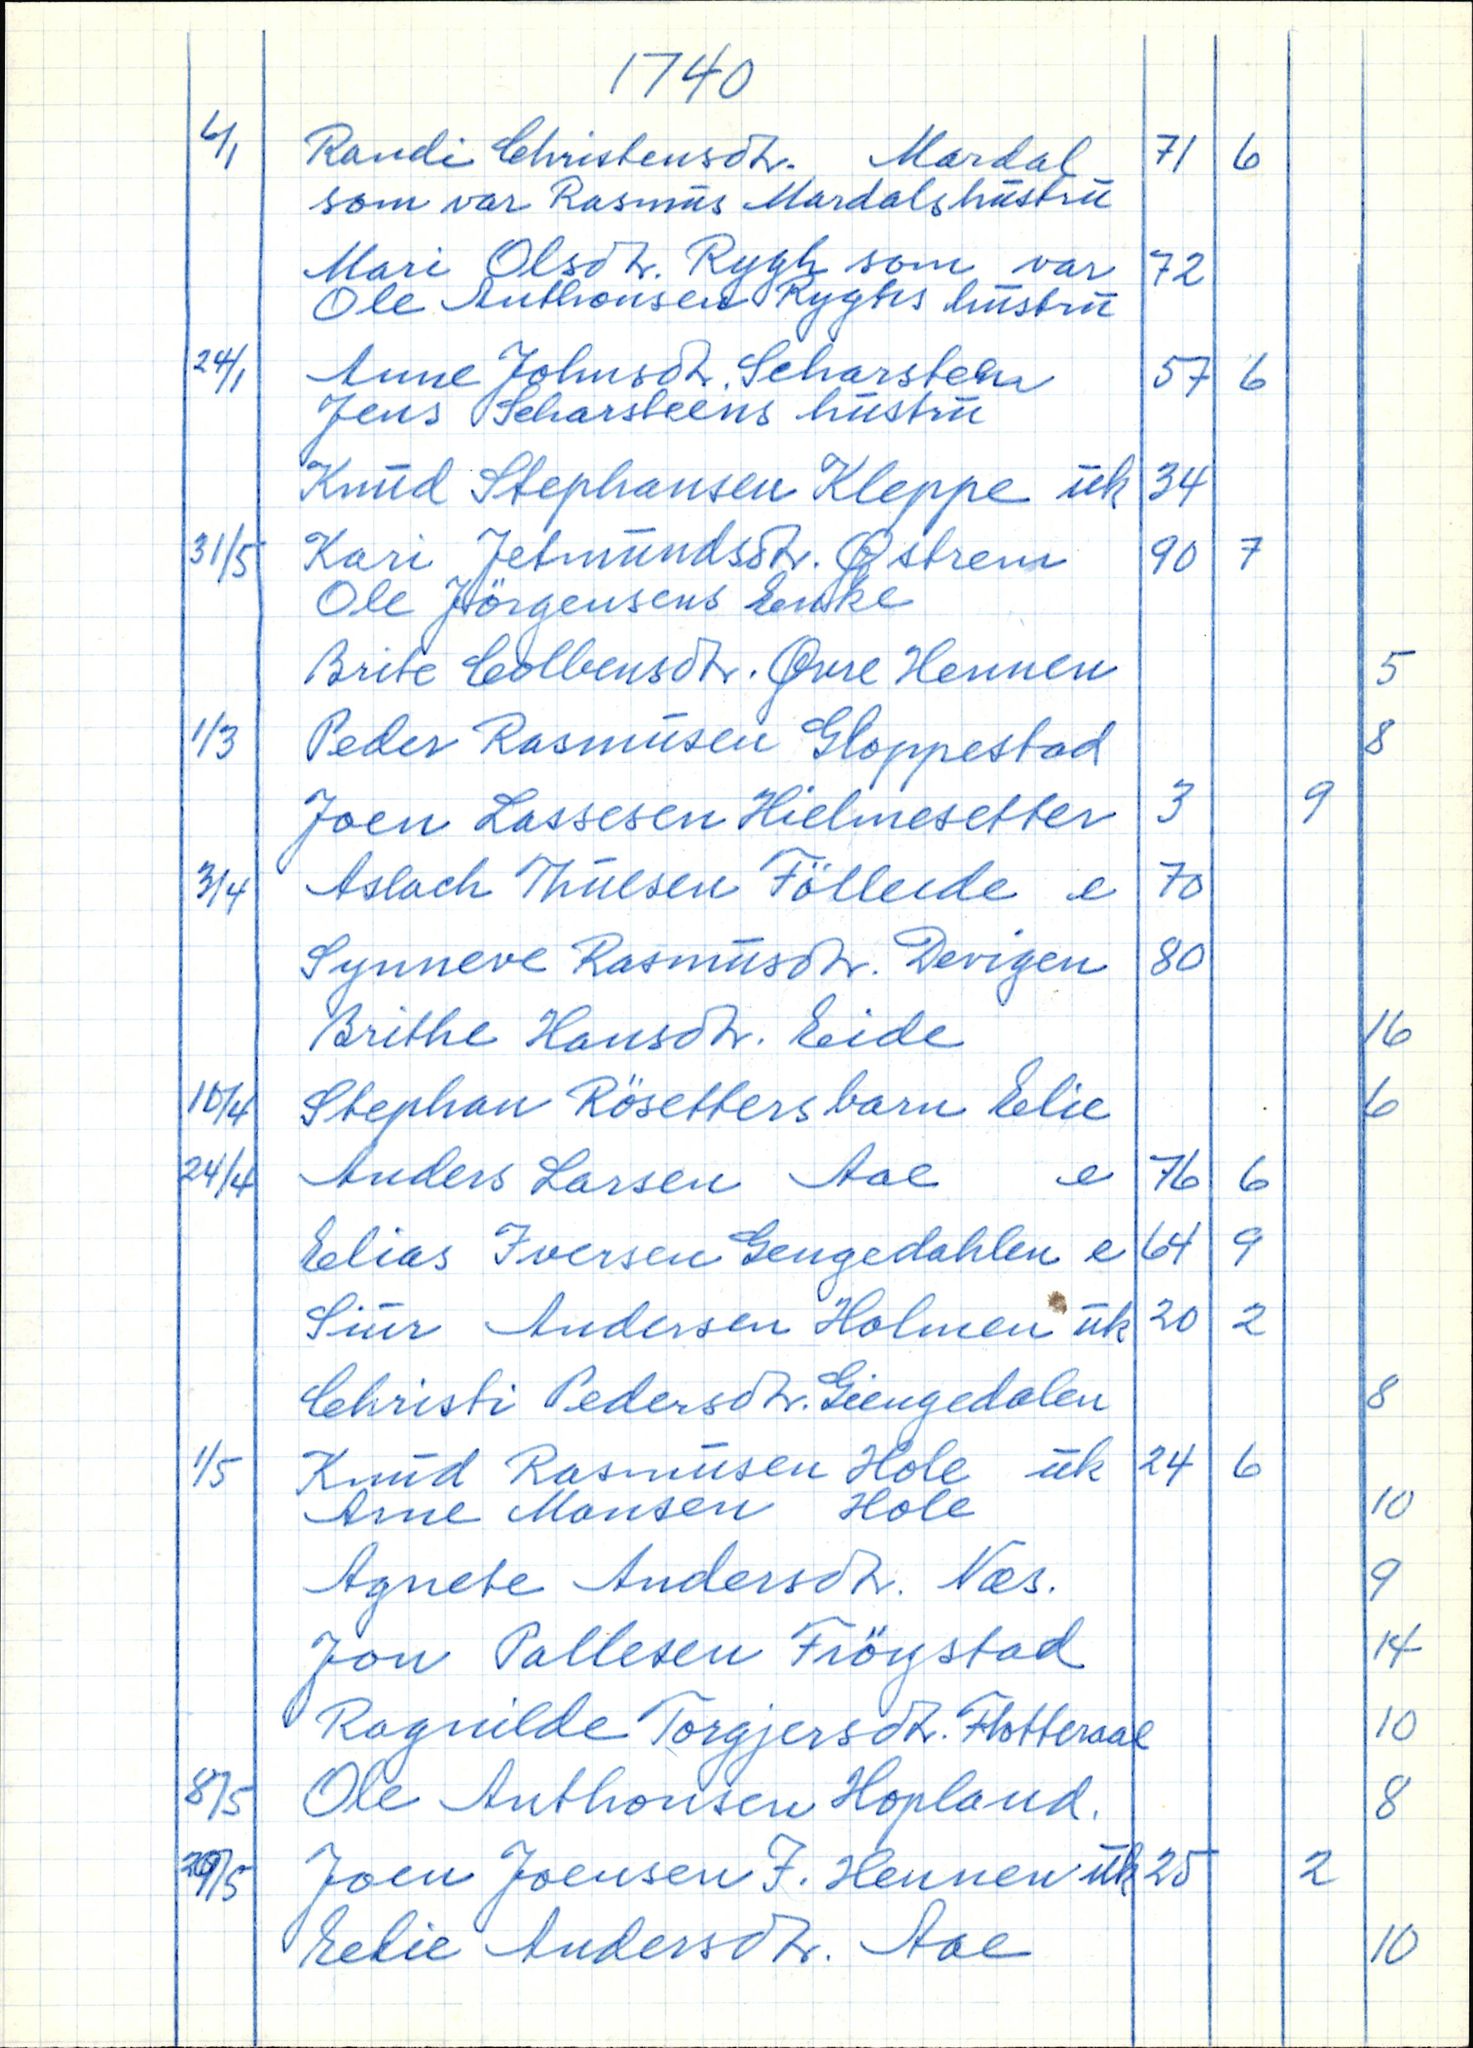 1740
6/1 Randi Christensdtr. Mardal 71 6
som var Rasmus Mardals hustru
Mari Olsdtr. Rygh som var 72
Ole Anthonsen Ryghs hustru
24/1 Anne Johnsdtr. Scharsteen 57 6
Jens Scharsteens hustru
Knud Stephansen Kleppe uk 34
31/5 Kari Jetmundsdtr. Østrem 90 7
Ole Jörgensens Enke
Brite Colbensdtr. Øvre Hennen 5
1/3 Peder Rasmusen Gloppestad 8
Joen Lassesen Hielmesetter 3 9
3/4 Aslach Thuesen Fölleide e 70
Synneve Rasmusdtr. Devigen 80
Brithe Hansdtr. Eide 16
10/4 Stephan Rösetters barn Elie 6
24/4 Anders Larsen Aae e 76 6
Elias Iversen Gengedahlen e 64 9
Siur Andersen Holmen uk 20 2
Christi Pedersdtr. Giengedalen 8
1/5 Knud Rasmusen Hole uk 24 6
Arne Monsen Hole 10
Agnete Andersdtr. Næs. 9
Jon Pallesen Fröystad 14
Ragnilde Torgjersdtr. Flotteraae 10
8/5 Ole Anthonsen Hopland. 8
29/5 Joen Joensen I. Hennen uk 25 2
Eelie Andersdtr. Aae 10